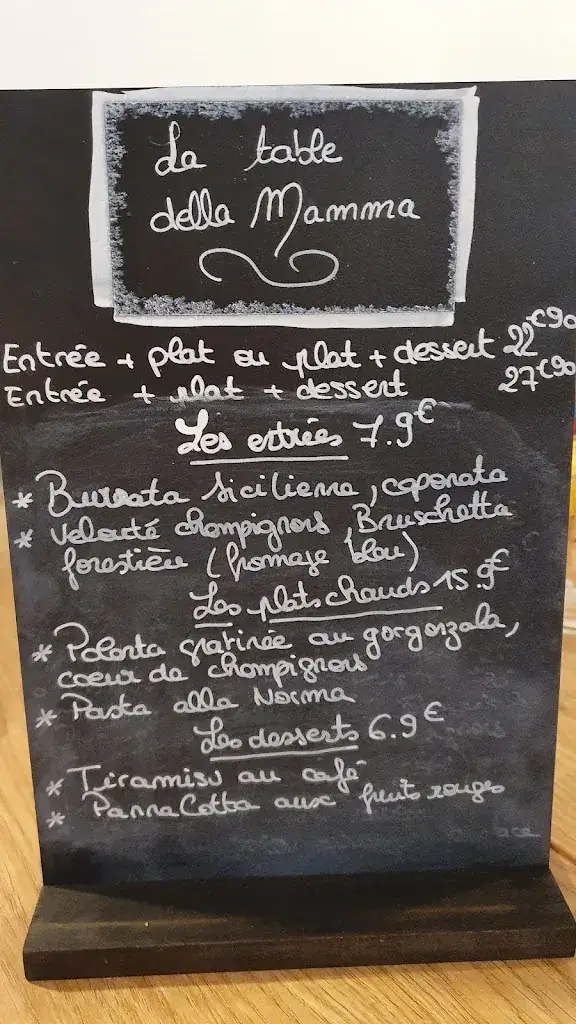 La table
della Mamma
Entrée + plat ou plat + dessert 22€90
Entrée + plat + dessert 27€90
Les entrées 7.9€
* Burrata Sicilienne, caponata
* Velouté champignons, Bruschetta
forestière (fromage bleu)
Les plats chauds 15.9€
* Polenta gratinée au gorgonzola,
coeur de champignons
* Pasta alla Norma
Les desserts 6.9€
* Tiramisu au café
* Panna Cotta aux fruits rouges